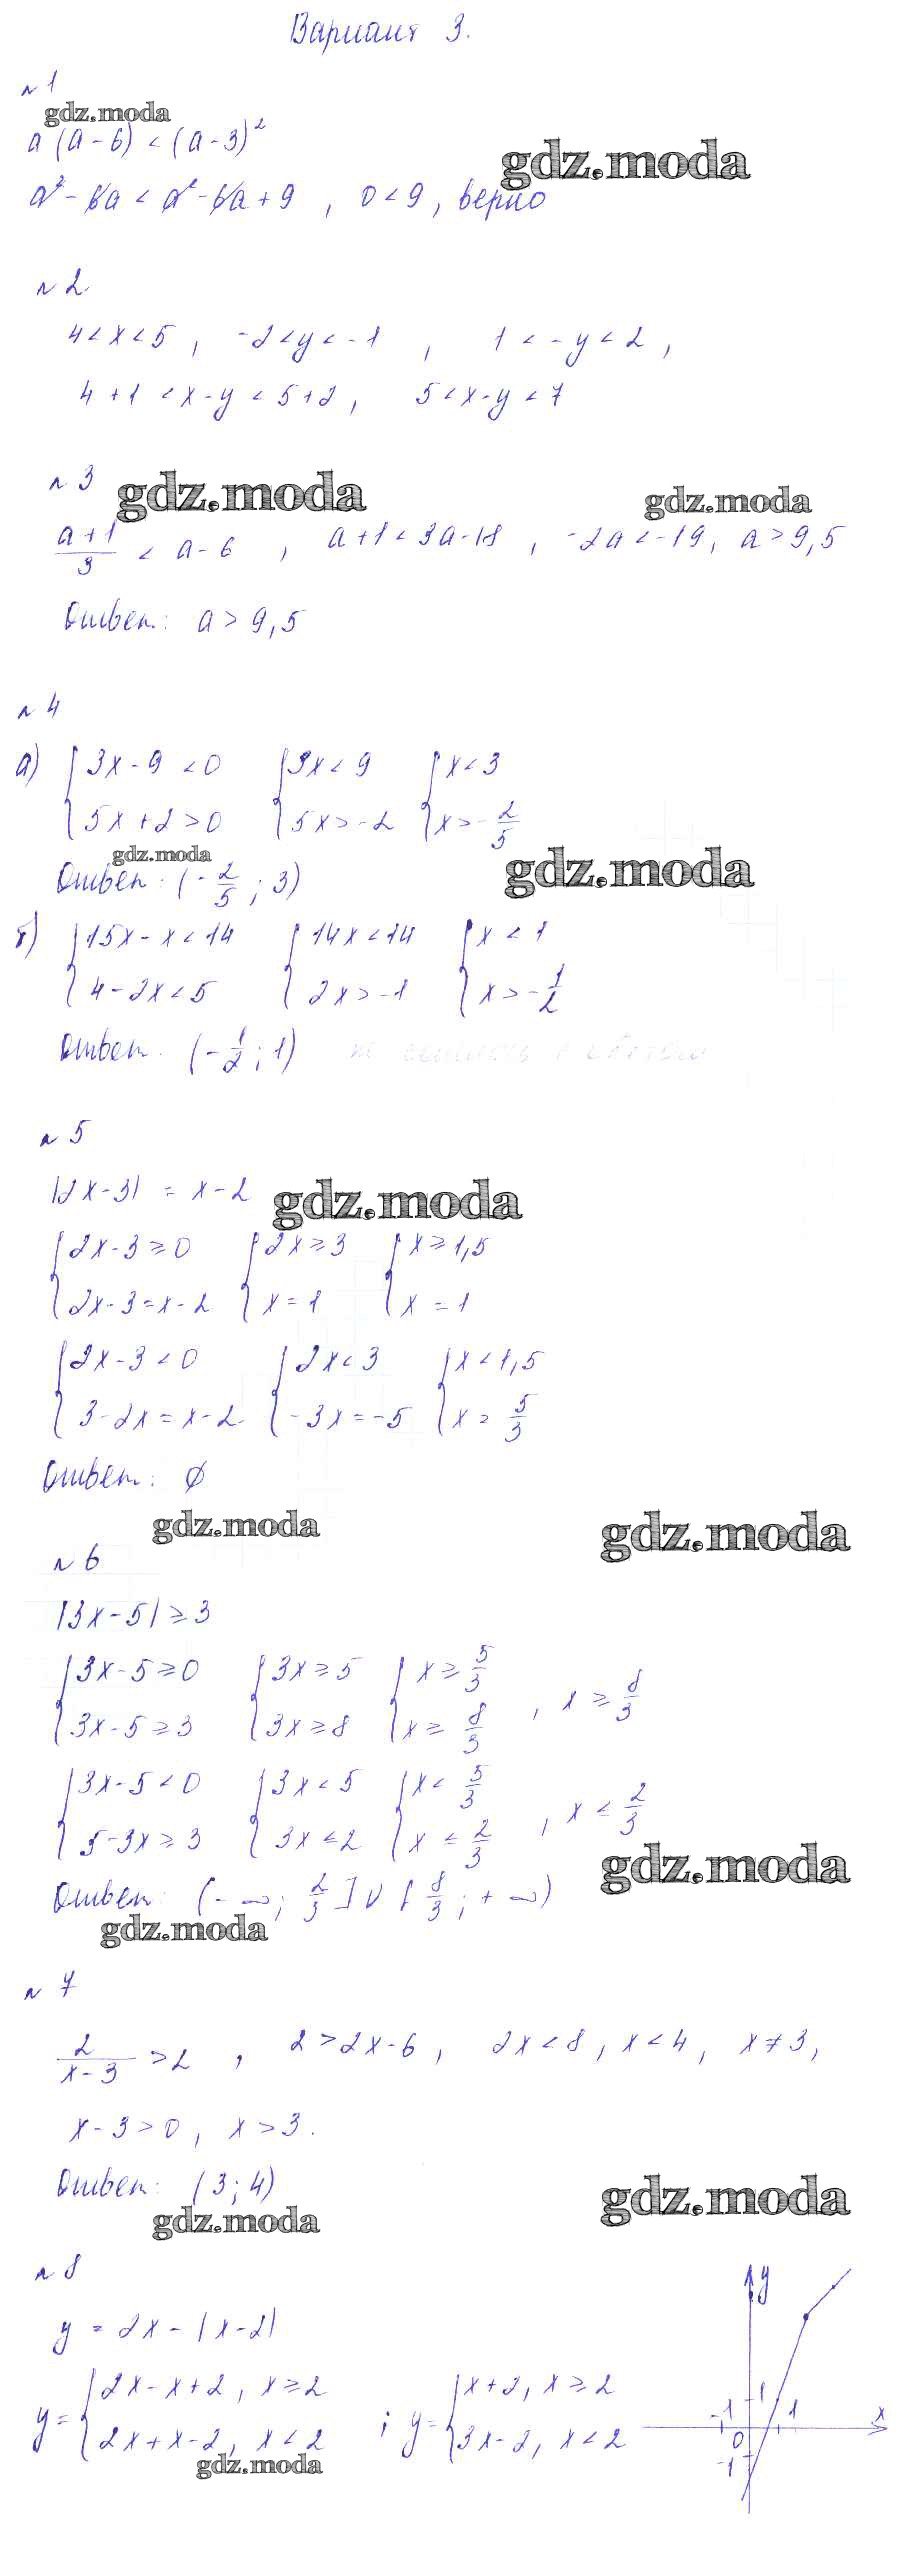 Вариант 3.
№1
gdz.moda
a (a - 6) < (a - 3)²
gdz.moda
a² - 6a < a² - 6a + 9 , 0 < 9 , верно
№2
4 < x < 5 , -2 < y < -1 , 1 < -y < 2 ,
4 + 1 < x - y < 5 + 2 , 5 < x - y < 7
№3
gdz.moda
gdz.moda
(a + 1)/3 < a - 6 , a + 1 < 3a - 18 , -2a < -19 , a > 9,5
Ответ: a > 9,5
№4
а) { 3x - 9 < 0 { 3x < 9 { x < 3
{ 5x + 2 > 0 { 5x > -2 { x > -2/5
gdz.moda
gdz.moda
Ответ: (-2/5 ; 3)
б) { 15x - x < 14 { 14x < 14 { x < 1
{ 4 - 2x < 5 { 2x > -1 { x > -1/2
Ответ: (-1/2 ; 1)
№5
|2x - 3| = x - 2
gdz.moda
{ 2x - 3 ≥ 0 { 2x ≥ 3 { x ≥ 1,5
{ 2x - 3 = x - 2 { x = 1 { x = 1
{ 2x - 3 < 0 { 2x < 3 { x < 1,5
{ 3 - 2x = x - 2 { -3x = -5 { x = 5/3
Ответ: ∅
gdz.moda
gdz.moda
№6
|3x - 5| ≥ 3
{ 3x - 5 ≥ 0 { 3x ≥ 5 { x ≥ 5/3
{ 3x - 5 ≥ 3 { 3x ≥ 8 { x ≥ 8/3 , x ≥ 8/3
{ 3x - 5 < 0 { 3x < 5 { x < 5/3
{ 5 - 3x ≥ 3 { 3x ≤ 2 { x ≤ 2/3 , x ≤ 2/3
gdz.moda
Ответ: (-∞; 2/3] ∪ [8/3 ; +∞)
gdz.moda
№7
2/(x - 3) > 2 , 2 > 2x - 6 , 2x < 8 , x < 4 , x ≠ 3 ,
x - 3 > 0 , x > 3 .
Ответ: (3 ; 4)
gdz.moda
gdz.moda
№8
y = 2x - |x - 2|
y = { 2x - x + 2 , x ≥ 2 ; y = { x + 2 , x ≥ 2
{ 2x + x - 2 , x < 2 { 3x - 2 , x < 2
gdz.moda
y
1
-1
1
x
0
-1